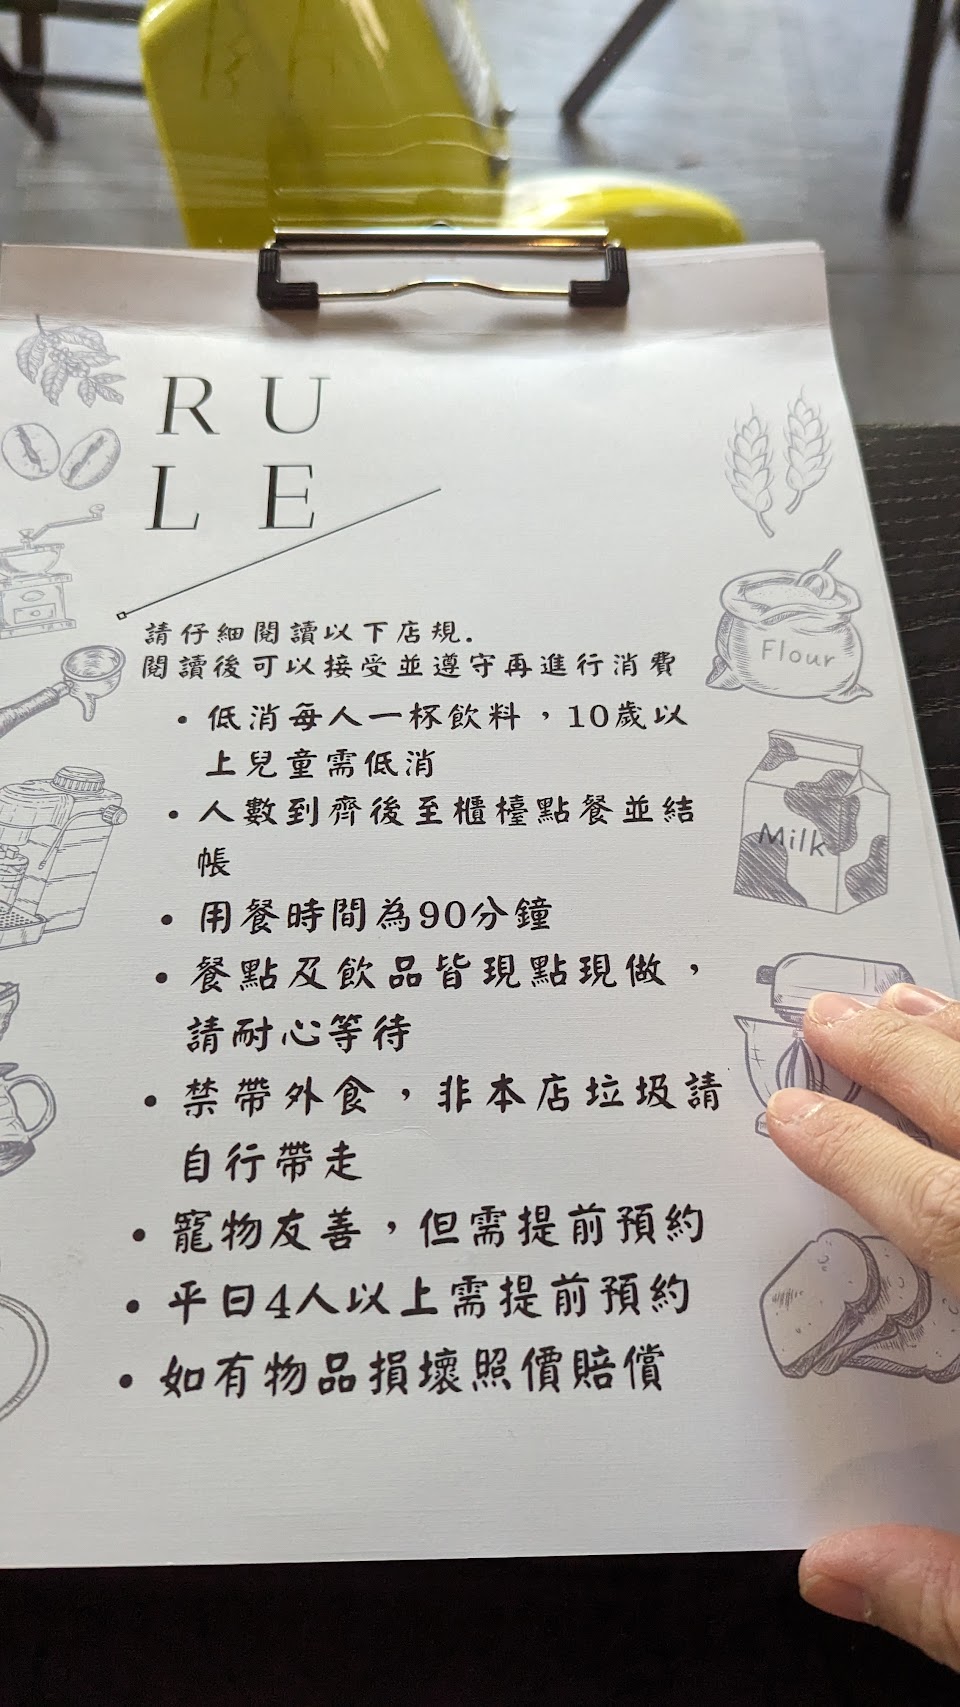 R U
L E
請仔細閱讀以下店規.
閱讀後可以接受並遵守再進行消費
• 低消每人一杯飲料，10歲以
上兒童需低消
• 人數到齊後至櫃檯點餐並結
帳
• 用餐時間為90分鐘
• 餐點及飲品皆現點現做，
請耐心等待
• 禁帶外食，非本店垃圾請
自行帶走
• 寵物友善，但需提前預約
• 平日4人以上需提前預約
• 如有物品損壞照價賠償
Flour
Milk